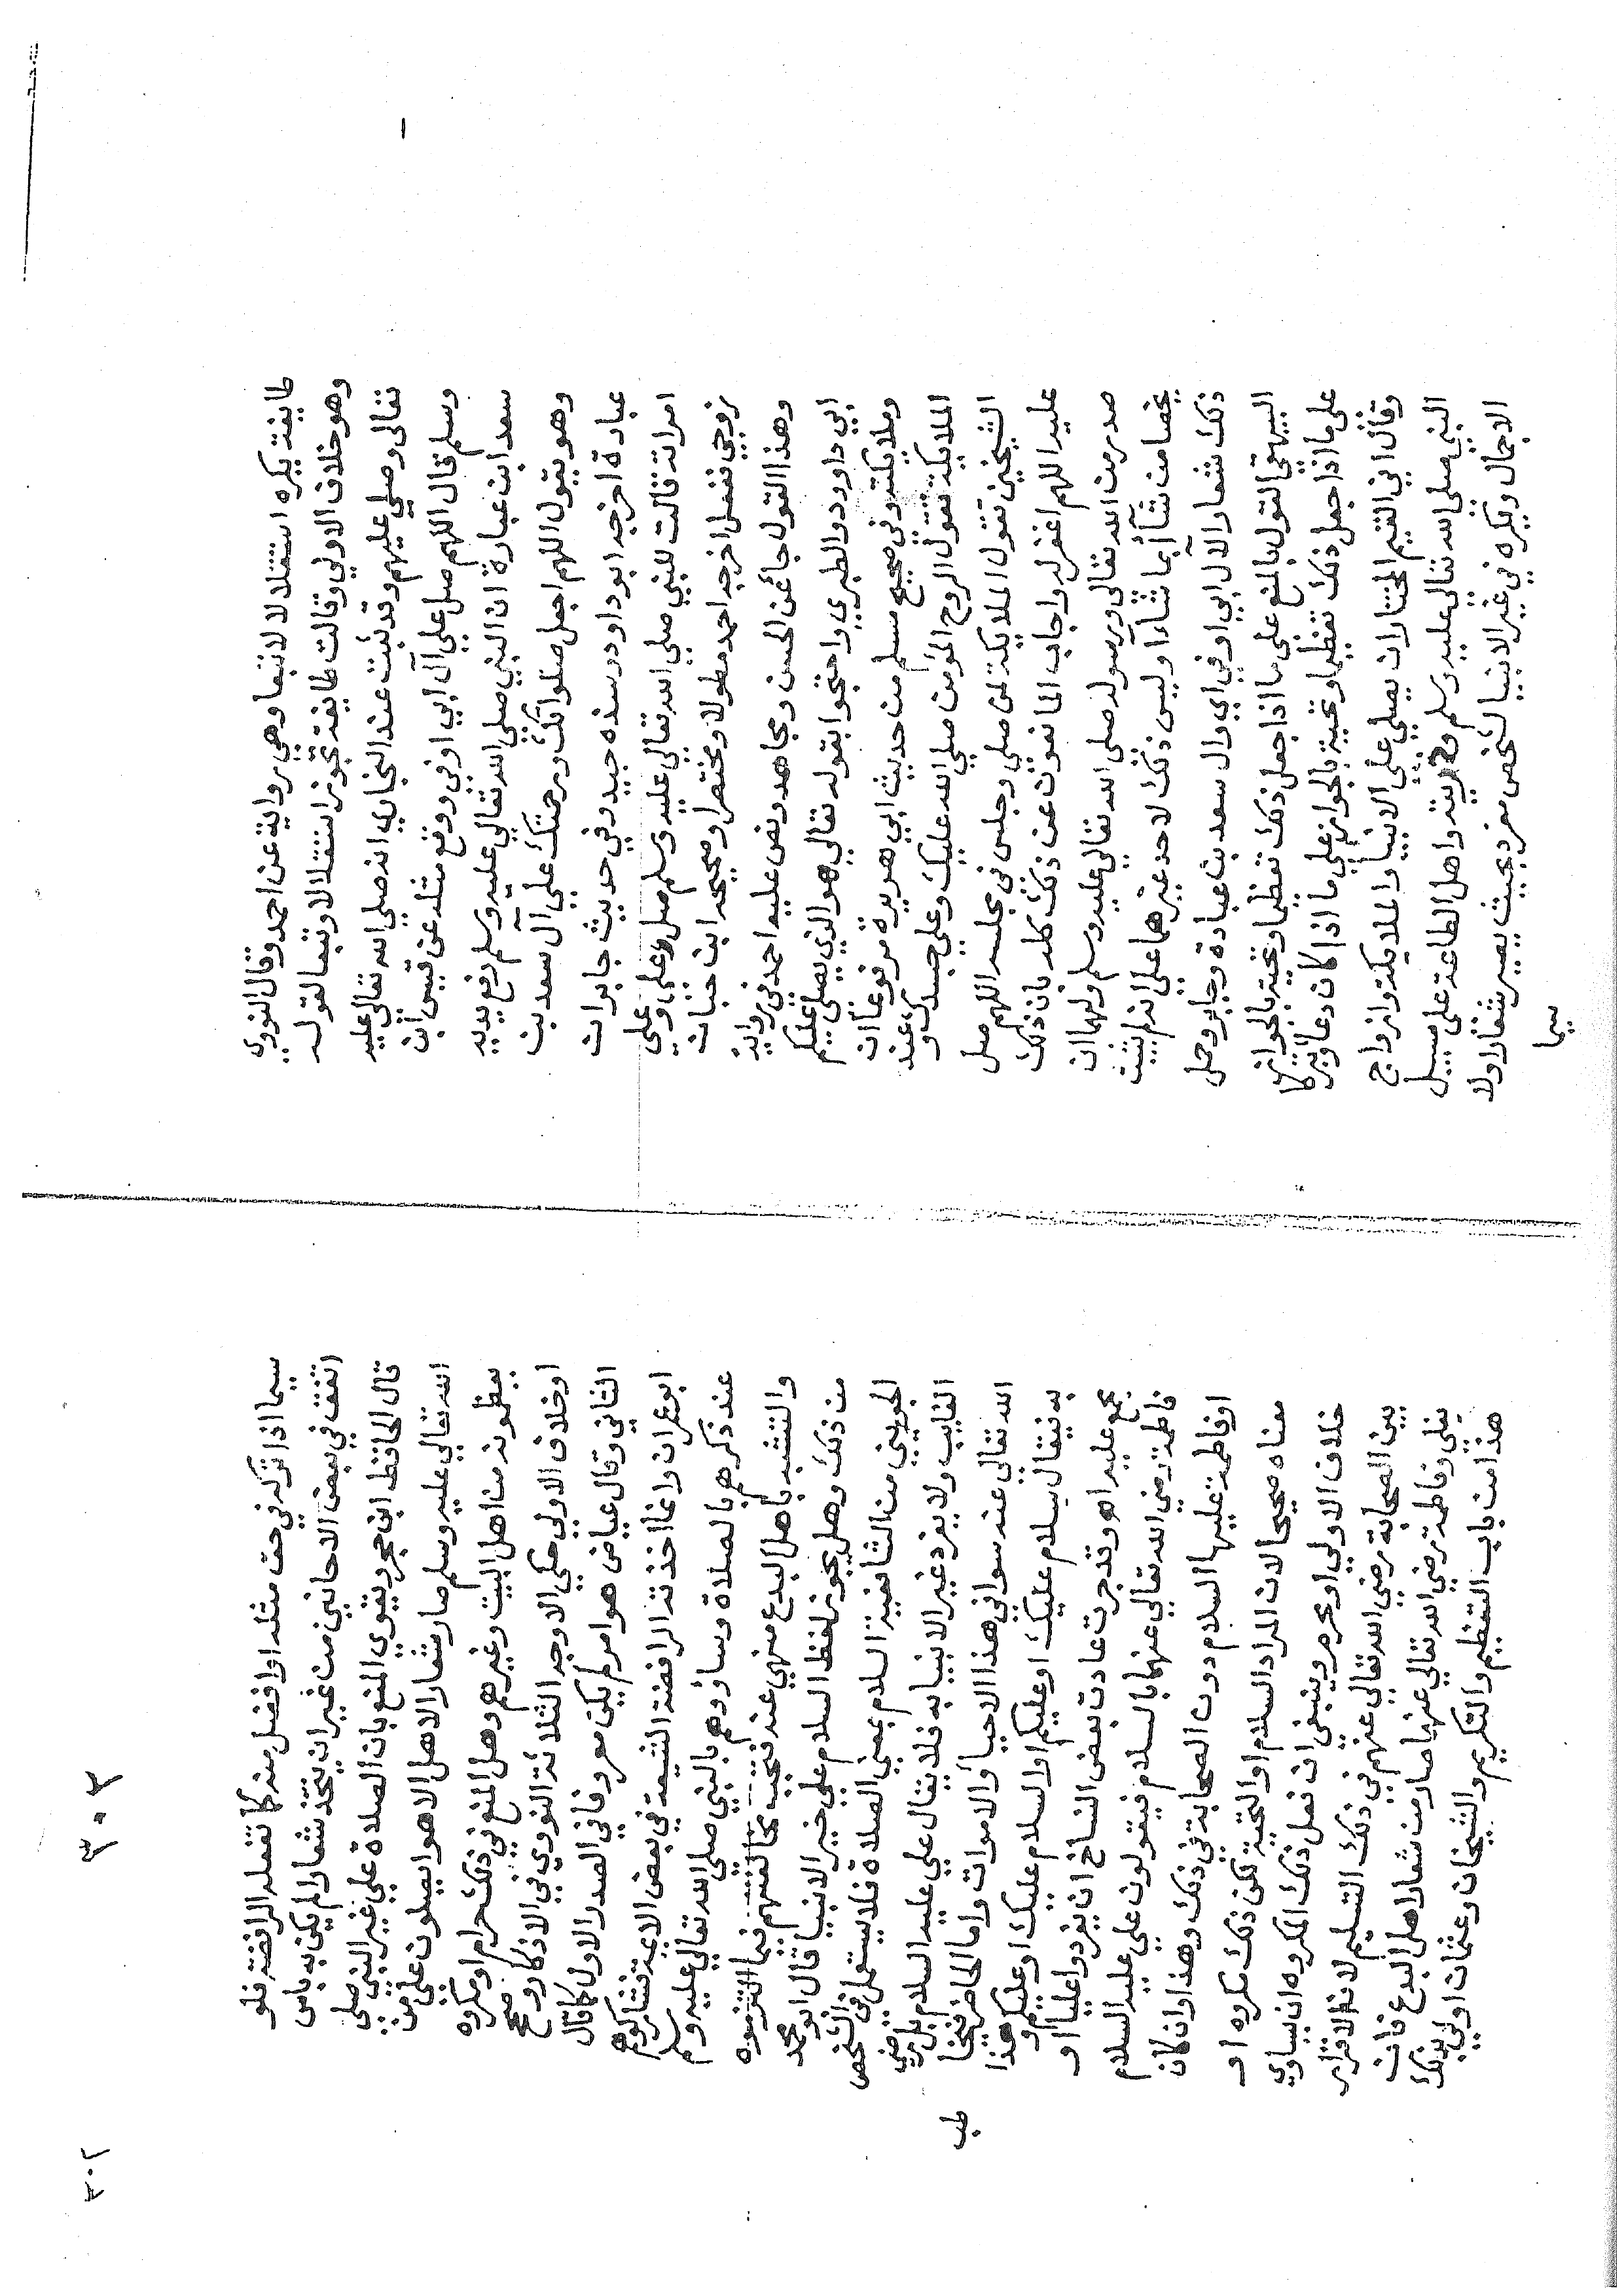 طايفة يكره استقلالا لاتبعا وهي رواية عن احمد وقال النووي
وهو خلاف الاولي وقالت طايفة تجوز استقلالا وتبعا لقوله
تعالى وصلي عليهم وقد ثبت عند البخاري انه صلي الله تعالي عليه
وسلم قال اللهم صل علي آل ابي اوفي ووقع مثله عن قيس ابن
سعد ابن عبادة ان النبي صلي الله تعالي عليه وسلم رفع يديه
وهو يقول اللهم اجعل صلواتك ورحمتك علي آل سعد بن
عبادة اخرجه ابو داود وسنده جيد وفي حديث جابر ان
امراته قالت للنبي صلي الله تعالي عليه وسلم صل علي وعلي
زوجي ففعل اخرجه احمد مطولا ومختصرا وصححه ابن حبان
وهذا القول جا عن الحسن ومجاهد ونص عليه احمد في رواية
ابي داوود والطبري واحتجوا بقوله تعالي هو الذي يصلي عليكم
وملايكته وفي صحيح مسلم من حديث ابي هريرة مرفوعا ان
الملايكة تقول الروح المؤمن صلي الله عليك وعلي جسدك وعند
الشيخين تقول الملايكة لمن صلي وجلس في مجلسه اللهم صل
عليه اللهم اغفر له واجاب المانعون عن ذلك كله بان ذلك
صدر من الله تعالى ورسوله صلي الله تعالي عليه وسلم ولهما ان
يخصا من شاآ بما شاءآ وليس ذلك لاحد غيرهما علي انه لم يثبت
ذلك شعار الآل ابي اوفي ابي وال سعد بن عبادة وجابر وحمل
البيهقي القول بالمنع علي ما اذا جعل ذلك تعظيما وتحية بالجوازيها
على ما اذا جعل ذلك تعظيما وتحية بالجواز علي ما اذا كان دعا وتبركا
وقال ابن القيم المختار ان يصلي علي الانبيا والملايكة وازواج
النبي صلي الله تعالي عليه وسلم وذريته واهل الطاعة على سبيل
الاجمال ويكره في غير الانبيا لشخص مفرد بحيث يصير شعارا ولا
سيما
٣٠٣
سيما اذا ترك في حق مثله او افضل منه كما تفعله الرافضة فلو
اتفق في بعض الاحايين من غير ان يتخذ شعارا لم يكن به باس
قال الحافظ ابن حجر ويقوي المنع بان الصلاة علي غير النبي صلي
الله تعالي عليه وسلم صار شعارا لاهل الاهوا يصلون علي من
يعظمونه من اهل البيت وغيرهم وهل المنع في ذلك حرام او مكروه
او خلاف الاولي حكي الاوجه الثلاثة النووي في الاذكار وصحح
الثاني وقال عياض هو امر لم يكن معروفا في الصدر الاول كما قال
ابو عمران وانما اخذته الرافضة الشيعة في بعض الايمة فشاركوهم
عند ذكرهم بالصلاة وساووهم بالنبي صلي الله تعالي عليه وسلم
والتشبه باهل البدع منهي عنه فتجب مخالفتهم فيما التزموه
من ذلك وهل يجوز لفظ السلام علي خير الانبيا قال ابو محمد
الجويني من الشافعية السلام بمعني الصلاة فلا يستعمل في الشخص
الغايب ولا يفرد غير الانبيا به فلا يقال علي عليه السلام بل رضي
الله تعالي عنه سوا في هذا الاحيا والاموات واما الحاضر فيخا
طب
به فيقال سلام عليك او عليكم او السلام عليك او عليكم وهذا
مجمع عليه اه وقد جرت عادت بعض النساخ ان يفردوا عليا او
فاطمة رضي الله تعالي عنهما بالسلام فيقولون علي عليه السلام
او فاطمة عليها السلام دون الصحابة في ذلك وهذا وان كان
معناه صحيحا لان المراد السلام او التحية لكن ذلك مكروه او
خلاف الاولي او محرم وينبغي ان نعمل ذلك المكروه ان نساوي
بين الصحابة رضي الله تعالي عنهم في ذلك التسليم لان الاقرار
بعلي وفاطمة رضي الله تعالي عنهما صار من شعار اهل البدع فان
هذا من باب التعظيم والتكريم والشيخان وعثمان اولي بذلك
٣٠٢